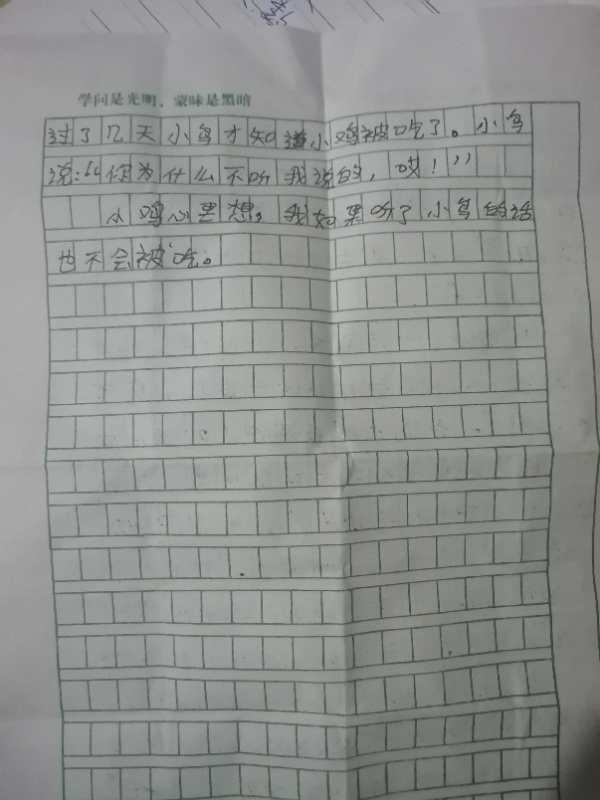 学问是光明，蒙昧是黑暗
过了几天小鸟才知道小鸡被吃了。小鸟
说：“你为什么不听我说的，哎！”
小鸡心里想。我如果听了小鸟的话
也不会被吃。